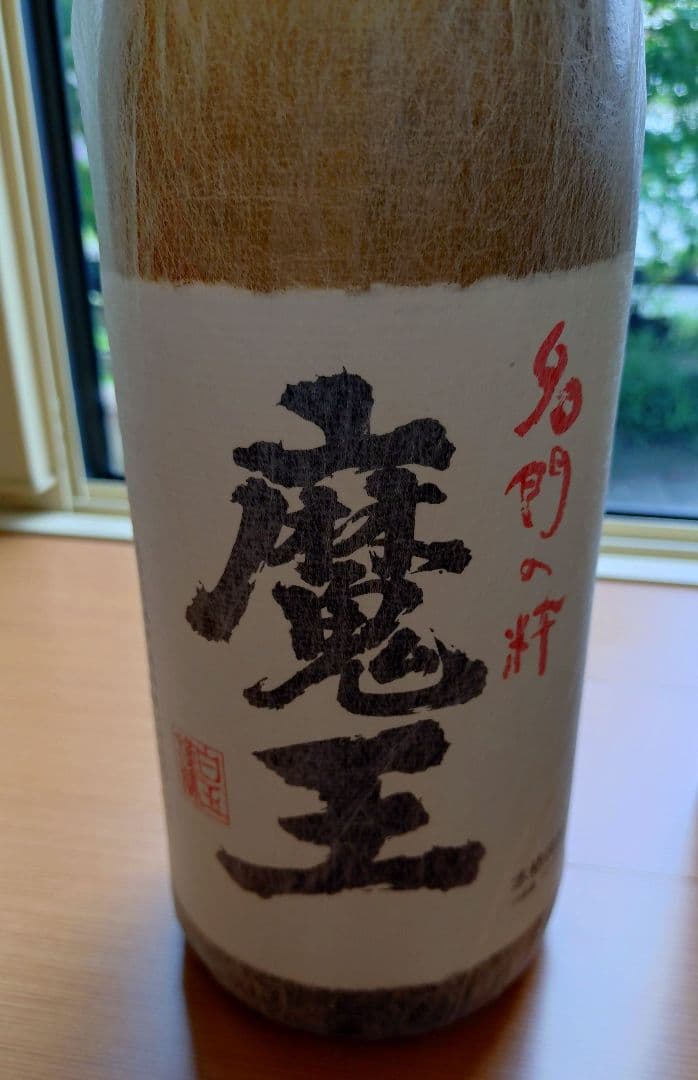 名門の粋
魔王
白玉